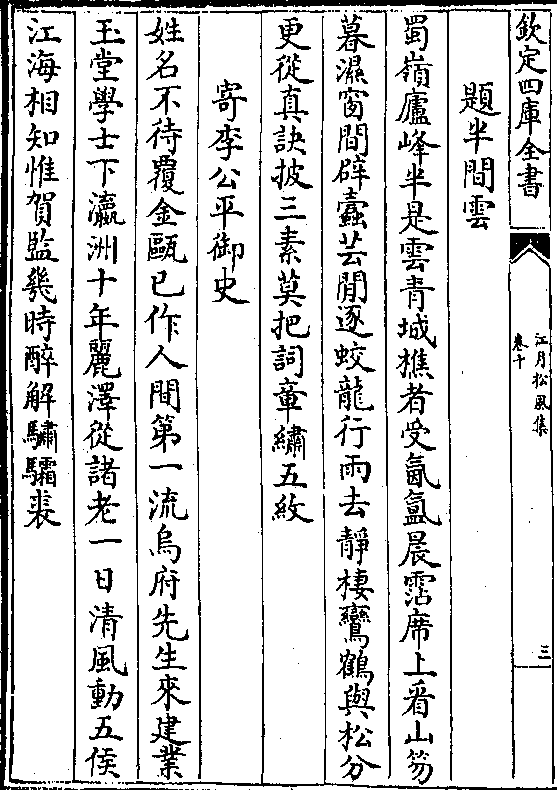 欽定四庫全書
江月松風集
卷十
三
題半間雲
蜀嶺廬峰半是雲青城樵者受氤氲晨霑席上看山笏
暮濕窗間辟蠧芸閒逐蛟龍行雨去靜棲鸞鶴與松分
更從真訣披三素莫把詞章繡五紋
寄李公平御史
姓名不待覆金甌已作人間第一流烏府先生來建業
玉堂學士下瀛洲十年麗澤從諸老一日清風動五侯
江海相知惟賀監幾時醉解驌驦裘